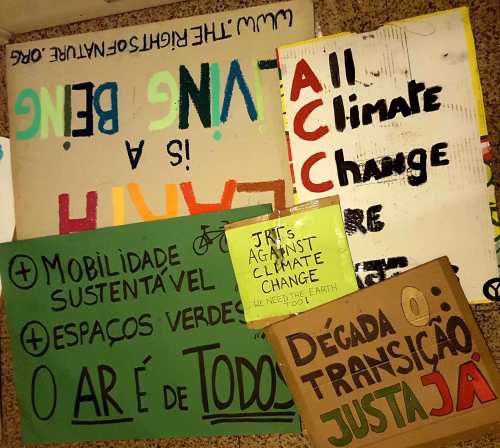 EARTH
IS A
LIVING BEING
WWW.THERIGHTSOFNATURE.ORG
All
Climate
Change
RE
+ MOBILIDADE
SUSTENTÁVEL
+ ESPAÇOS VERDES
O AR É DE TODOS
JRTs
AGAINST
CLIMATE
CHANGE
WE NEED THE EARTH
TOO!
DÉCADA 0:
TRANSIÇÃO
JUSTA JÁ